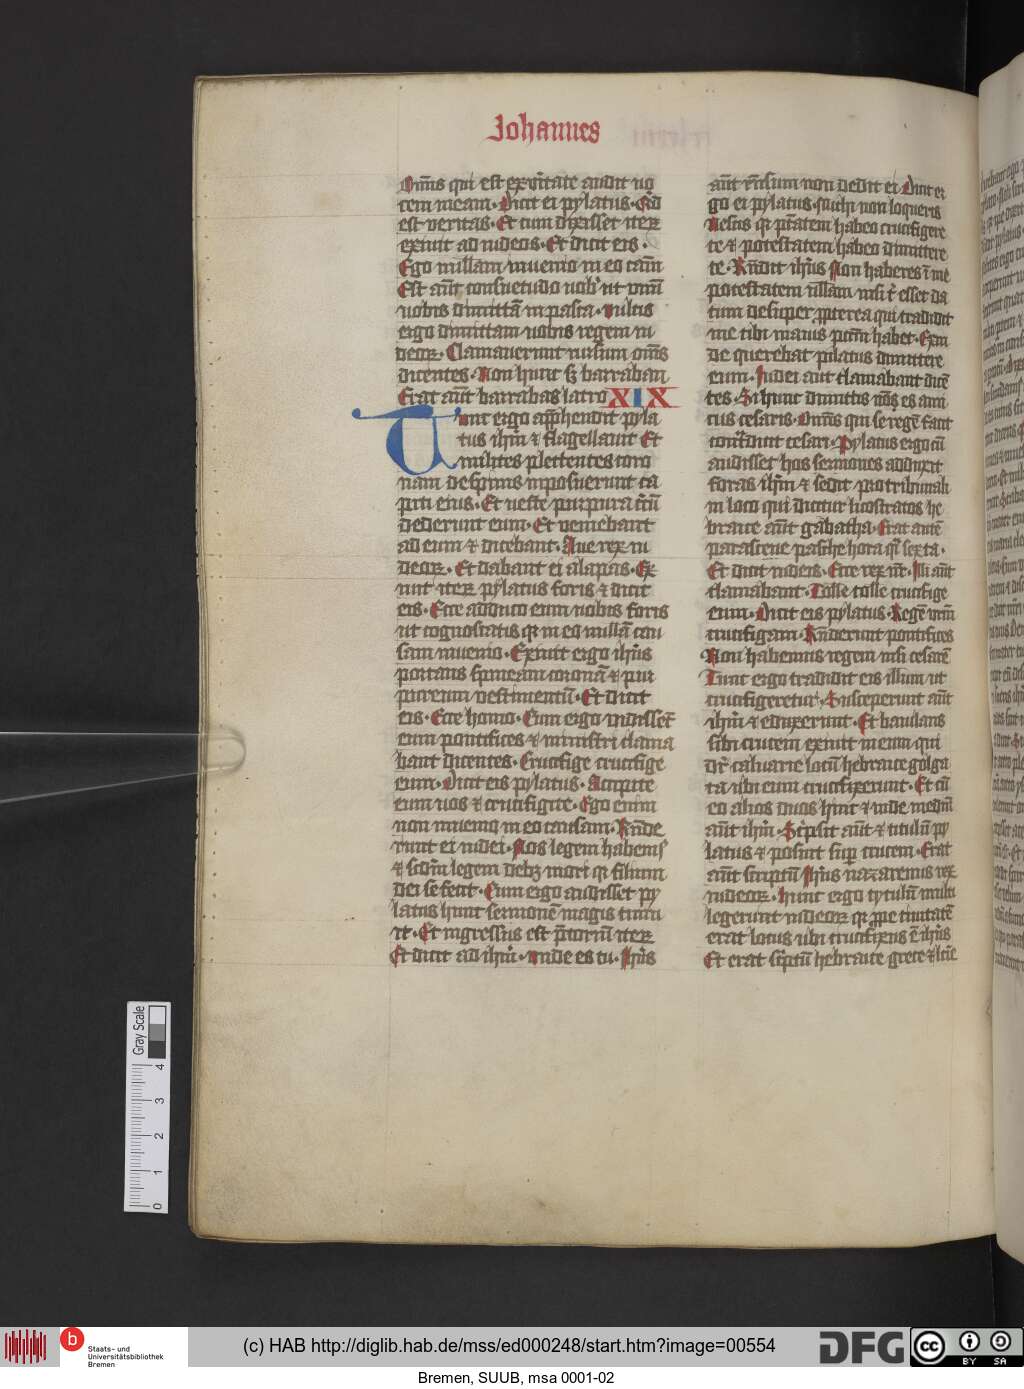 Johannes
Om̄is qui est ex v̓itate audit uo
cem meam. Dicit ei pylatus. Qid
est veritas. Et cum dixisset iteꝝ
exiuit ad iudeos. Et dicit eis.
Ego nullam inuenio in eo cām
Est aūt consuetudo uob̓ ut vnū
uobis dimittā in pasca. vultis
ergo dimittam uobis regem iu
deoꝝ. Clamauerunt rursum om̄s
dicentes. Non hunc sꝫ barraban
Erat aūt barrabas latro XIX
Tunc ergo app̄hendit pyla
tus ihm̄ ⁊ flagellauit Et
milites plectentes coro
nam de spinis inposuerunt ca
piti eius. Et ueste purpura c̓cū
dederunt eum. Et veniebant
ad eum ⁊ dicebant. Aue rex iu
deoꝝ. Et dabant ei alapas. Ex
iuit iteꝝ pylatus foris ⁊ dicit
eis. Ecce adduco eum uobis foris
ut cognoscatis qꝛ in eo nullā cau
sam inuenio. Exiuit ergo ih̄us
portans spineam coronā ⁊ pur
pureum vestimentū. Et dicit
eis. Ecce homo. Cum ergo vidisset̄
eum pontifices ⁊ ministri clama
bant dicentes. Crucifige crucifige
eum. Dicit eis pylatus. Accipite
eum uos ⁊ crucifigite. Ego enim
non inuenio in eo causam. Rn̄de
runt ei iudei. Nos legem habem̓
⁊ scdm̄ legem debꝫ mori qꝛ filium
dei se fecit. Cum ergo audisset py
latus hunc sermonē magis timu
it. Et ingressus est p̄toriū iteꝝ
Et dicit ad ihm̄. vnde es tu. Ih̄us
aūt rn̄sum non dedit ei Dicit er
go ei pylatus. Michi non loqueris
Nescis qꝛ p̄tatem habeo crucifigere
te ⁊ potestatem habeo dimittere
te. Rn̄dit ih̄us Non haberes ī me
potestatem ullam nisi t̓ esset da
tum desuper ꝓpterea qui tradidit
me tibi maius pctm̄ habet. Exin
de querebat pilatus dimittere
eum. Iudei aūt clamabant dicē
tes. Si hunc dimittis nō es ami
cus cesaris. Om̄is qui se regē facit
contradicit cesari. Pylatus ergo cū
audisset hos sermones adduxit
foras ihm̄ ⁊ sedit pro tribunali
in loco qui dicitur licostratos he
braice aūt gabatha. Erat autē
parasceue pasche hora q̄i sexta.
Et dicit iudeis. Ecce rex ur̄. Illi aūt
clamabant. Tolle tolle crucifige
eum. Dicit eis pylatus. Regē vrm̄
crucifigam. Rn̄derunt pontifices
Non habemus regem nisi cesarē
Tunc ergo tradidit eis illum ut
crucifigeretur. Susceperunt aūt
ihm̄ ⁊ eduxerunt. Et baiulans
sibi crucem exiuit in eum qui
dr̄ caluarie locū hebraice golga
ta ubi eum crucifixerunt. Et cū
eo alios duos hinc ⁊ inde mediū
aūt ihm̄. Sc̓psit aūt ⁊ titulū py
latus ⁊ posuit sup̄ crucem. Erat
aūt scriptū Ih̄us nazarenus rex
iudeoꝝ. Hunc ergo tytulū multi
legerunt iudeoꝝ qꝛ ꝓpe ciuitatē
erat locus ubi crucifixus ē ih̄us
Et erat sc̓ptū hebraice grece ⁊ latīe
Gray Scale
4
3
2
1
0
b
Staats- und
Universitätsbibliothek
Bremen
(c) HAB http://diglib.hab.de/mss/ed000248/start.htm?image=00554
DFG
cc BY SA
Bremen, SUUB, msa 0001-02